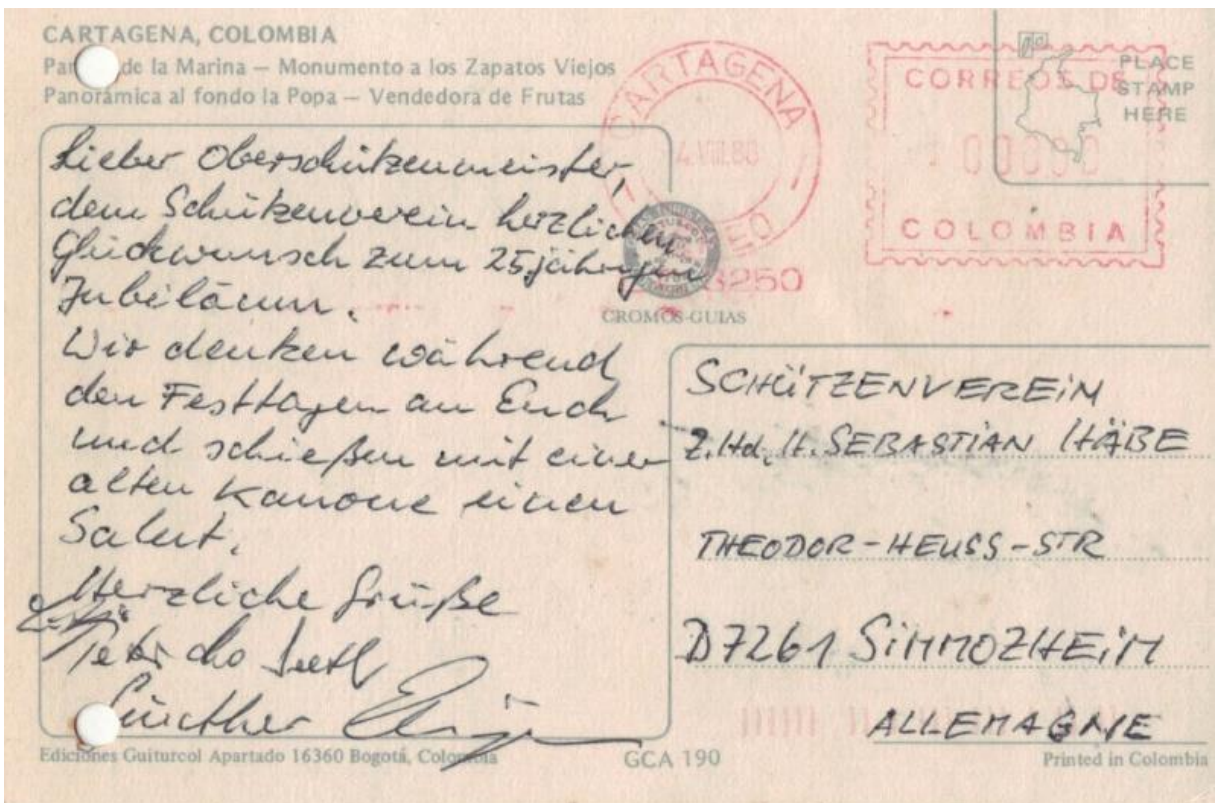 CARTAGENA, COLOMBIA
de la Marina — Monumento a los Zapatos Viejos
Panorámica al fondo la Popa — Vendedora de Frutas
CARTAGENA
CORREOS DE
COLOMBIA
PLACE
STAMP
HERE
CROMOS-GUIAS
Lieber Oberschützenmeister,
dem Schützenverein herzlichen
Glückwunsch zum 25jährigen
Jubiläum.
Wir denken während
den Festtagen an Euch
und schießen mit einer
alten Kanone einen
Salut.
Herzliche Grüße
Günther
SCHÜTZENVEREIN
Z.Hd. H. SEBASTIAN HÄBE
THEODOR-HEUSS-STR
D7261 SIMMOZHEIM
ALLEMAGNE
Ediciones Guiturcol Apartado 16360 Bogotá, Colombia
GCA 190
Printed in Colombia